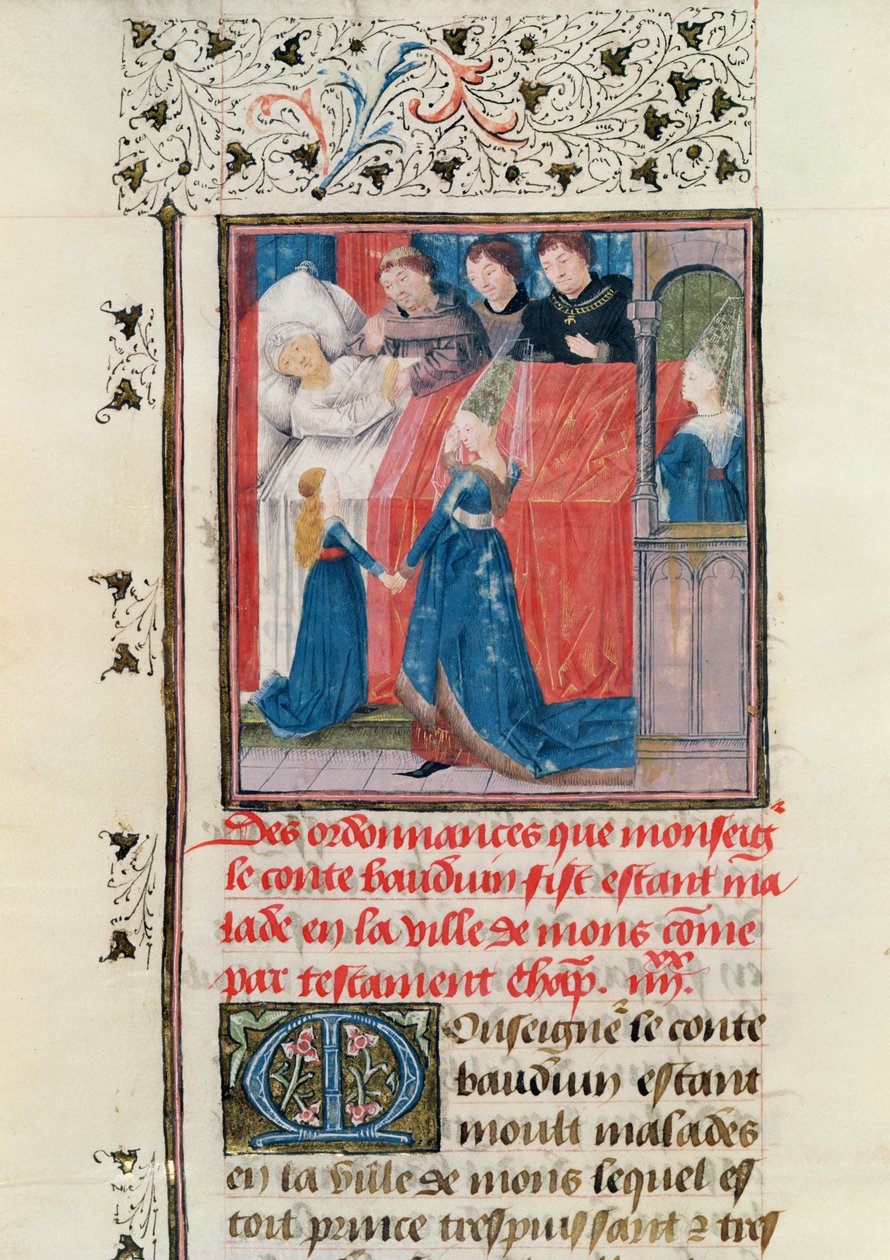 Des ordonnances que monseigr
le conte bauduin fist estant ma
lade en la ville de mons cōme
par testament chap̄. iiiixx.
Monseignēr le conte
bauduin estant
moult malades
en la ville de mons lequel es
toit prince trespuissant ⁊ tres